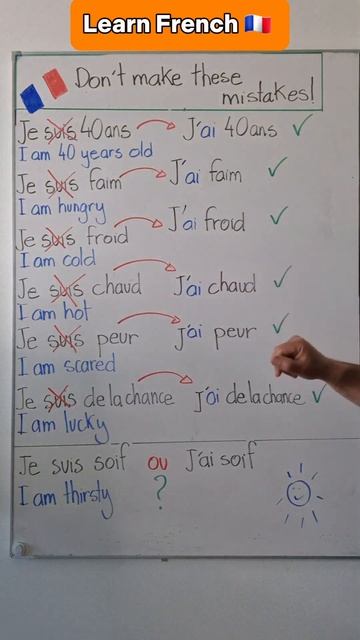 Learn French 🇫🇷
Don't make these
mistakes!
Je suis 40 ans J'ai 40 ans ✓
I am 40 years old
Je suis faim J'ai faim ✓
I am hungry
Je suis froid J'ai froid ✓
I am cold
Je suis chaud J'ai chaud ✓
I am hot
Je suis peur J'ai peur ✓
I am scared
Je suis de la chance J'ai de la chance ✓
I am lucky
Je suis soif ou J'ai soif
I am thirsty ?